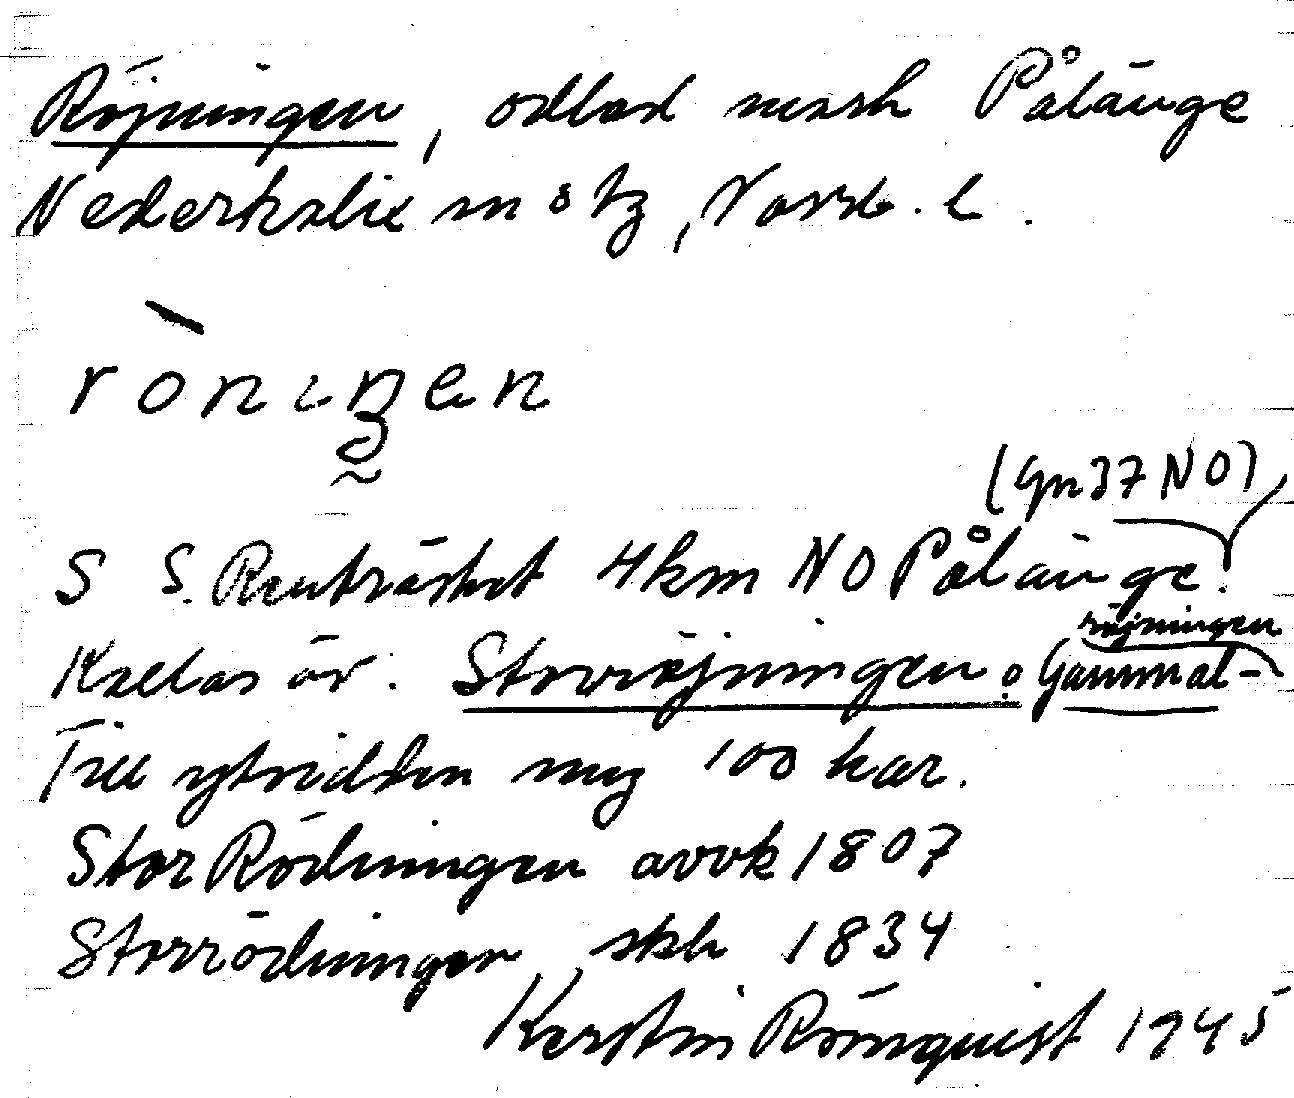 Röjningen, odlad marsk Pålänge
Nederkalix sn o tg, Norrb. l.
ròniŋen
(Gn37NO)
S S. Renträsket 4km NO Pålänge.
Kallas äv. Storröjningen o Gammal-
röjningen
Till ytvidden mig 100 har.
StorRödningen avvk 1807
Storrödningen skh 1834
Kerstin Römquist 1945